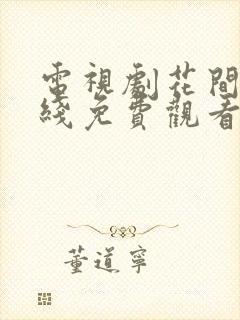 電視劇花間
綫免費觀看
董道寧